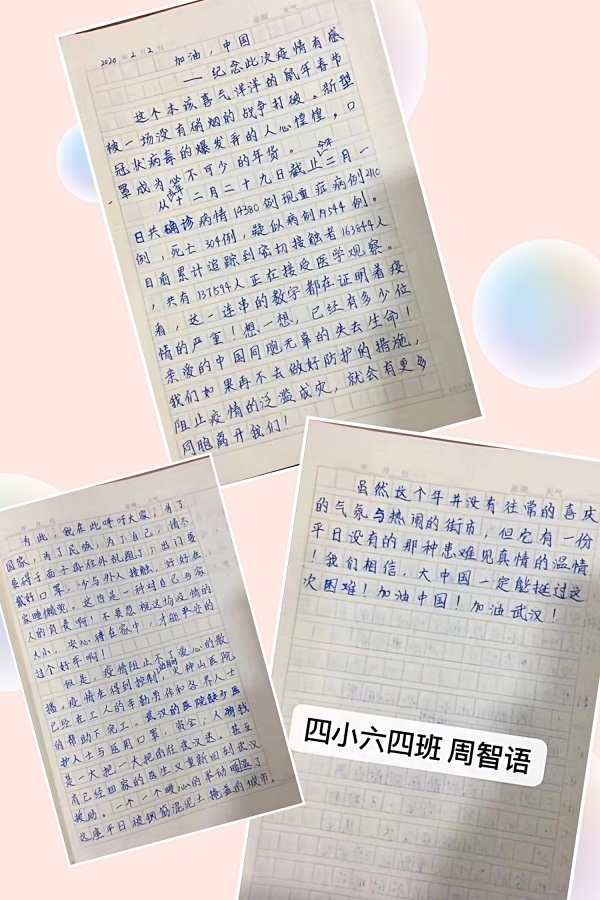 2020年2月2日
加油，中国
——纪念此次疫情有感
这个本该喜气洋洋的鼠年春节
被一场没有硝烟的战争打破。新型
冠状病毒的爆发弄的人心惶惶，口
罩成为必不可少的年货。
从十二月二十九日截止今年二月一
日共确诊病情14380例现重症病例2110
例，死亡304例，疑似病例19544例。
目前累计追踪到密切接触者163844人
，共有137594人正在接受医学观察。
看，这一连串的数字都在证明着疫
情的严重！想一想，已经有多少位
亲爱的中国同胞无辜的失去生命！
我们如果再不去做好防护的措施，
阻止疫情的泛滥成灾，就会有更多
同胞离开我们！
为此，我在此呼吁大家，为了
国家，为了民族，为了自己，请不
要碍于面子再往外乱跑了；出门要
戴好口罩，少与外人接触，好好在
家睡懒觉。这也是一种对自己与家
人的负责啊！不要忽视这场疫情的
大小，安心待在家中，才能平安的
过个好年啊！
但是，疫情阻止不了爱心的散
播。疫情在得到控制，火神山医院
已经在工人的辛勤劳作和各界人士
的帮助下完工。武汉的医院缺少医
护人士与医用口罩，资金，人物我
是一大把一大把的往武汉送。甚至
有已经回家的医生又重新回到武汉
援助。一个一个暖心的举动温暖了
这座平日被钢筋混泥土掩盖的城市。
虽然这个年并没有往常的喜庆
的气氛与热闹的街市，但它有一份
平日没有的那种患难见真情的温情
！我们相信，大中国一定能挺过这
次困难！加油中国！加油武汉！
四小六四班 周智语